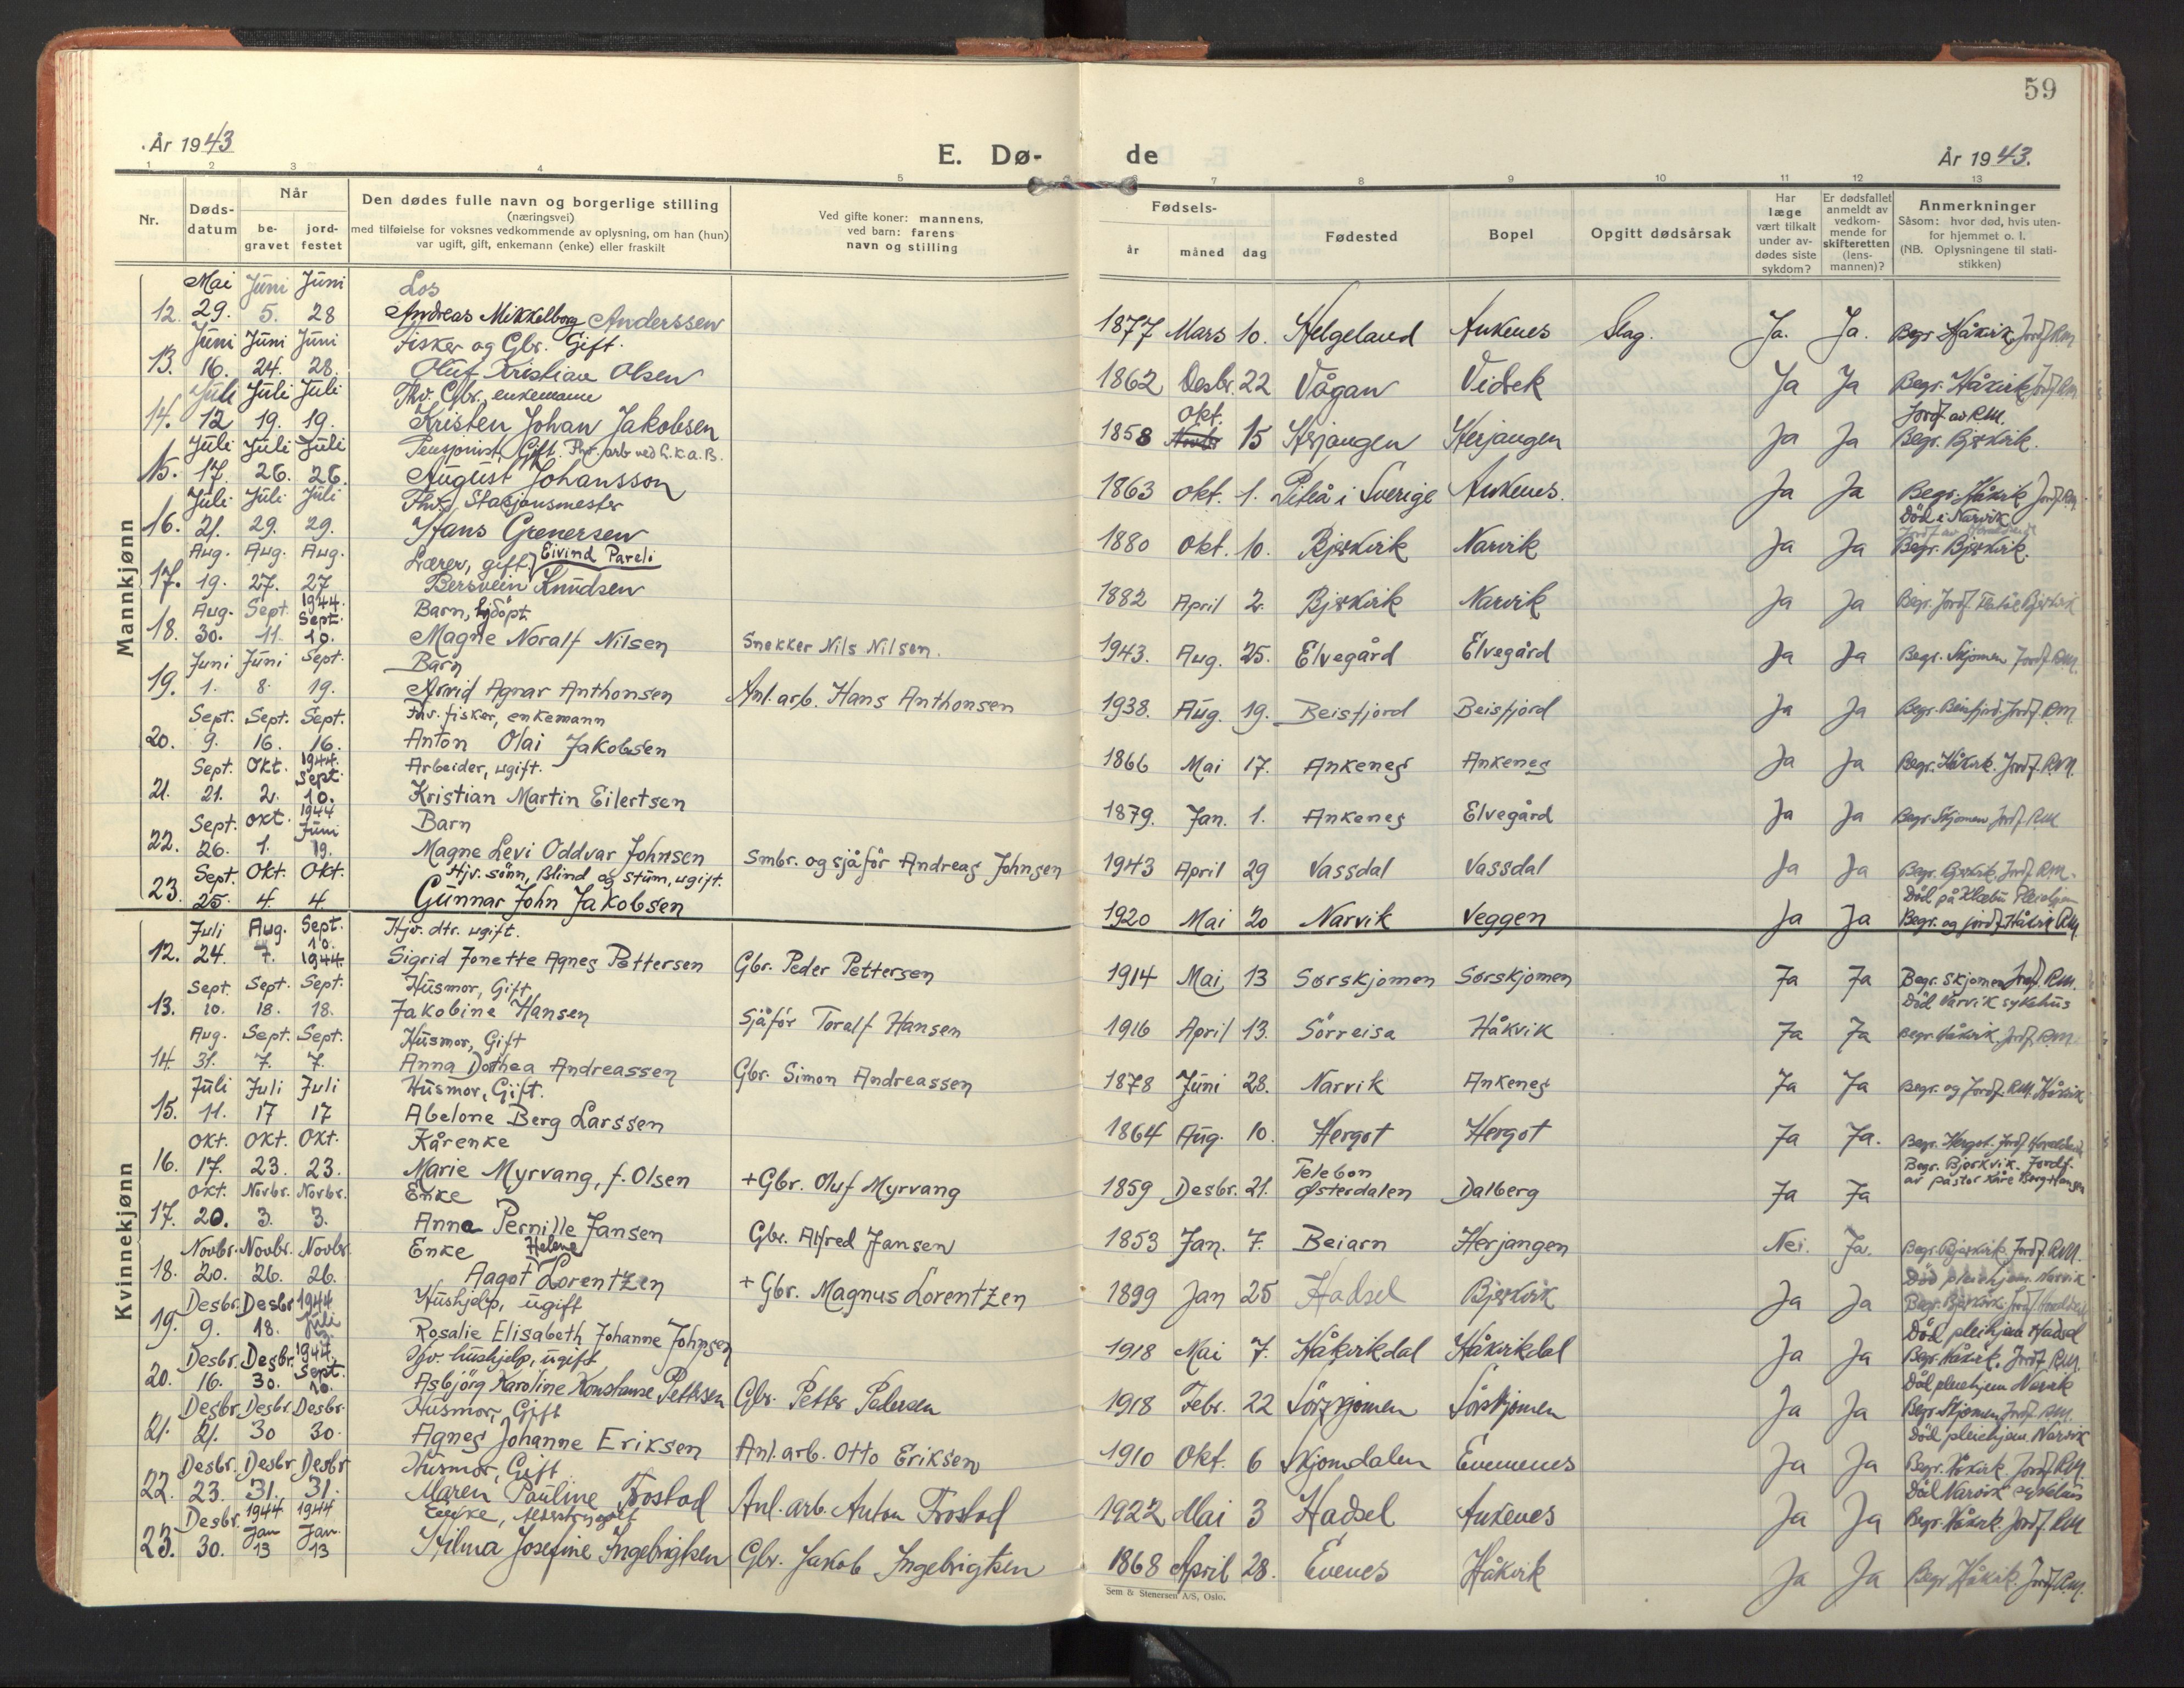 59
År 1943
E. Dø-
de
År 1943.
1 2 3 4 5 6 7 8 9 10 11 12 13
Nr.
Døds-
datum
Når
be-
gravet
jord-
festet
Den dødes fulle navn og borgerlige stilling
(næringsvei)
med tilføielse for voksnes vedkommende av oplysning, om han (hun)
var ugift, gift, enkemann (enke) eller fraskilt
Ved gifte koner: mannens,
ved barn: farens
navn og stilling
Fødsels-
år måned dag
Fødested
Bopel
Opgitt dødsårsak
Har
læge
vært tilkalt
under av-
dødes siste
sykdom?
Er dødsfallet
anmeldt av
vedkom-
mende for
skifteretten
(lens-
mannen)?
Anmerkninger
Såsom: hvor død, hvis uten-
for hjemmet o. l.
(NB. Oplysningene til stati-
stikken)
Mannkjønn
Mai Juni Juni Los
12. 29. 5. 28 Andreas Mikkelborg Anderssen 1877 Mars 10. Helgeland Ankenes Slag. Ja. Ja. Begr. Håkvik, Jordf. RM
Juni Juni Juni Fisker og Gbr. Gift.
13. 16. 24. 28. Oluf Kristian Olsen 1862 Desbr. 22 Vågan Vidrek Ja Ja Begr. Håkvik Jordf. RM
Juli Juli Juli Fhv. Gbr., enkemann Okt. Jordf. av R.M.
14. 12 19. 19. Kristen Johan Jakobsen 1858 Novbr 15 Herjangen Herjangen Ja Ja Begr. Bjerkvik.
Juli Juli Juli Pensjonist, Gift. Fhv. arb ved L.K.A.B.
15. 17. 26. 26. August Johansson 1863 Okt. 1. Piteå i Sverige Ankenes. Ja Ja Begr. Håkvik Jordf. RM.
Juli Juli Juli Fhv. Stasjonsmester Död i Narvik
16. 21. 29. 29. Hans Grenersen 1880 Okt. 10. Bjerkvik Narvik Ja Ja Begr. Bjerkvik.
Aug. Aug. Aug. Lærer, gift. Eivind Pareli
17. 19. 27. 27 Bersvein Knudsen 1882 April 2. Bjerkvik Narvik Ja Ja
Aug. Sept. 1944. Sept. Barn, hjdöpt
18. 30. 11. 10. Magne Noralf Nilsen Snekker Nils Nilsen. 1943. Aug. 25. Elvegård Elvegård Ja Ja Begr. Skjomen Jordf. RM.
Juni Juni Sept. Barn
19. 1. 8. 19. Arvid Agnar Anthonsen Anl. arb. Hans Anthonsen 1938. Aug. 19. Beisfjord Beisfjord Ja Ja Begr. Beisfjord. Jordf. RM.
Sept. Sept. Sept. Fhv. fisker, enkemann
20. 9. 16. 16. Anton Olai Jakobsen 1866 Mai 17. Ankenes Ankenes Ja Ja Begr. Håkvik. Jordf. RM.
Sept. Okt. 1944. Sept. Arbeider, ugift.
21. 21. 2. 10. Kristian Martin Eilertsen 1879. Jan. 1. Ankenes Elvegård Ja Ja Begr. Skjomen Jordf. RM
Sept. Okt. 1944 Juni Barn
22. 26. 1. 19. Magne Levi Oddvar Johnsen Smbr. og sjåför Andreas Johnsen 1943 April 29 Vassdal Vassdal Ja Ja Begr. Bjerkvik. Jordf. RM.
Sept. Okt. Okt. Hjv. sönn, Blind og stum, ugift. Död på Klæbu Pleiehjem
23. 25. 4. 4. Gunnar John Jakobsen 1920 Mai 20 Narvik Veggen Ja Ja Begr. og jordf. Håkvik RM.
Kvinnekjønn
Juli Aug. Sept. Hjv. dtr. ugift.
12. 24. 7. 10. 1944. Sigrid Jonette Agnes Pettersen Gbr. Peder Pettersen 1914 Mai 13 Sørskjomen Sørskjomen Ja Ja Begr. Skjomen Jordf. RM.
Sept. Sept. Sept. Husmor, Gift Död Narvik sykehus
13. 10. 18. 18. Jakobine Hansen Sjåför Toralf Hansen 1916 April 13. Sörreisa Håkvik Ja Ja Begr. Håkvik. Jordf. RM.
Aug. Sept. Sept. Husmor, Gift
14. 31. 7. 7. Anna Dorthea Andreassen Gbr. Simon Andreassen 1878 Juni 28. Narvik Ankenes Ja Ja Begr. og Jordf. RM. Håkvik
Juli Juli Juli Husmor, Gift.
15. 11. 17 17 Abelone Berg Larssen 1864 Aug. 10. Hergot Hergot Ja Ja. Begr. Hergot. Jordf.
Okt. Okt. Okt. Kårenke Telebon Begr. Bjerkvik. Jordf.
16. 17. 23. 23. Marie Myrvang, f. Olsen +Gbr. Oluf Myrvang 1859 Desbr. 21. Østerdalen Dalberg Ja Ja av pastor Kåre Berg-Hansen
Okt. Novbr. Novbr. Enke
17. 20. 3. 3. Anna Pernille Jansen Gbr. Alfred Jansen 1853 Jan. 7. Beiarn Herjangen Nei. Ja. Begr. Bjerkvik. Jordf. RM.
Novbr. Novbr. Novbr. Enke Helene Död pleiehjem. Narvik
18. 20. 26. 26. Aagot Lorentzen + Gbr. Magnus Lorentzen 1899 Jan 25 Hadsel Bjerkvik Ja Ja Begr. Bjerkvik. Jordf.
Desbr. Desbr 1944 Juli Hushjelp, ugift Död pleiehjem Hadsel
19. 9. 18. Rosalie Elisabeth Johanne Johnsen 1918 Mai 7. Håkvikdal Håkvikdal Ja Ja Begr. Håkvik. Jordf. RM.
Desbr. Desbr. 1944. Sept. Hjv. hushjelp, ugift Död pleiehjem Narvik
20. 16. 30. 10. Asbjörg Karoline Konstanse Pettersen Gbr. Petter Pedersen 1918 Febr. 22 Sörskjomen Sörskjomen Ja Ja Begr. Skjomen Jordf. RM.
Desbr. Desbr. Desbr. Husmor, Gift Död pleiehjem. Narvik
21. 21. 30 30. Agnes Johanne Eriksen Anl. arb. Otto Eriksen 1910 Okt. 6 Skjomdalen Evenenes Ja Ja Begr. Håkvik. Jordf. RM.
Desbr. Desbr Desbr Husmor, Gift Död Narvik sykehus
22. 23. 31. 31. Maren Pauline Frostad Anl. arb. Anton Frostad 1922 Mai 3 Hadsel Ankenes Ja Ja Begr. Håkvik. Jordf. RM
Desbr. 1944 Jan 1944 Jan. Enke, alderstrygdet
23. 30. 13 13 Hilma Josefine Ingebrigtsen Gbr. Jakob Ingebrigtsen 1868 April 28. Evenes Håkvik Ja Ja Begr. Håkvik. Jordf. RM.
Sem & Stenersen A/S, Oslo.